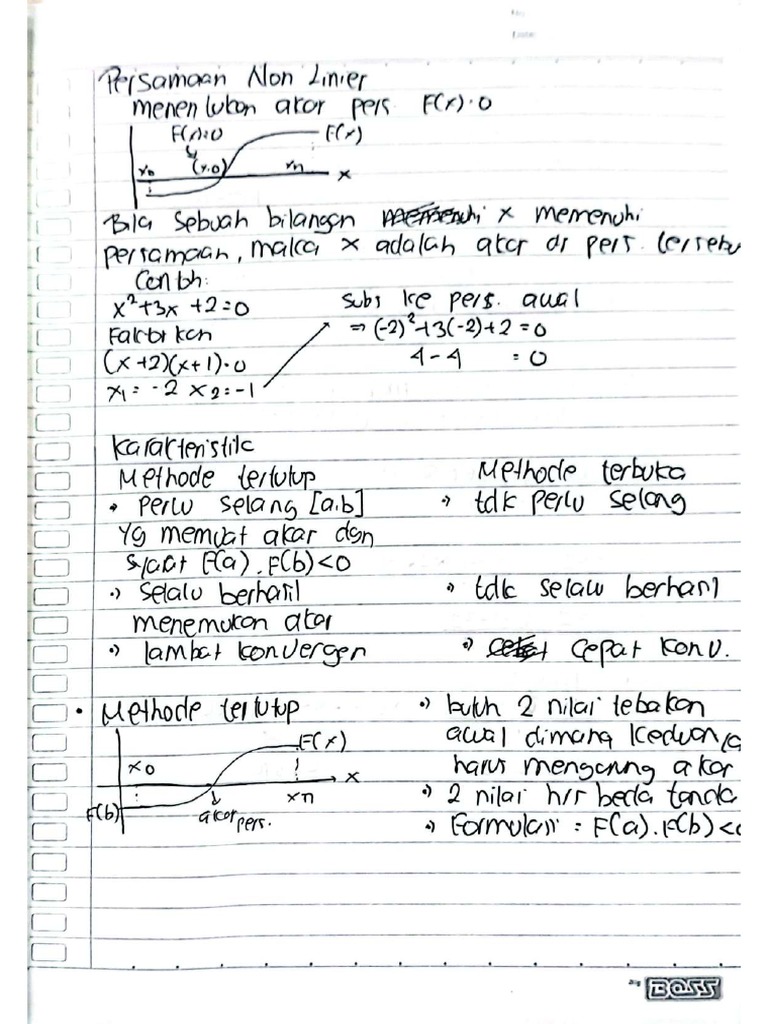 Persamaan Non Linier
menentukan akar pers. F(x)=0
F(x)=0
F(x)
x0
(x,0)
xn
x
Bila sebuah bilangan x memenuhi
persamaan, maka x adalah akar dr pers. tersebu
Contoh:
x²+3x+2=0
Faktorkan
(x+2)(x+1)=0
x1=-2 x2=-1
subs ke pers. awal
⇒ (-2)²+3(-2)+2=0
4-4 =0
Karakteristik
Methode tertutup
• perlu selang [a,b]
yg memuat akar dan
syarat F(a).F(b)<0
•) selalu berhasil
menemukan akar
•) lambat konvergen
Methode terbuka
•) tdk perlu selang
•) tdk selalu berhasil
•) cepat konv.
• Methode tertutup
F(x)
x0
x
xn
F(b)
akar pers.
•) butuh 2 nilai tebakan
awal dimana keduanya
harus mengurung akar
•) 2 nilai hrs beda tanda
•) Formulasi = F(a).F(b)<0
BOSS